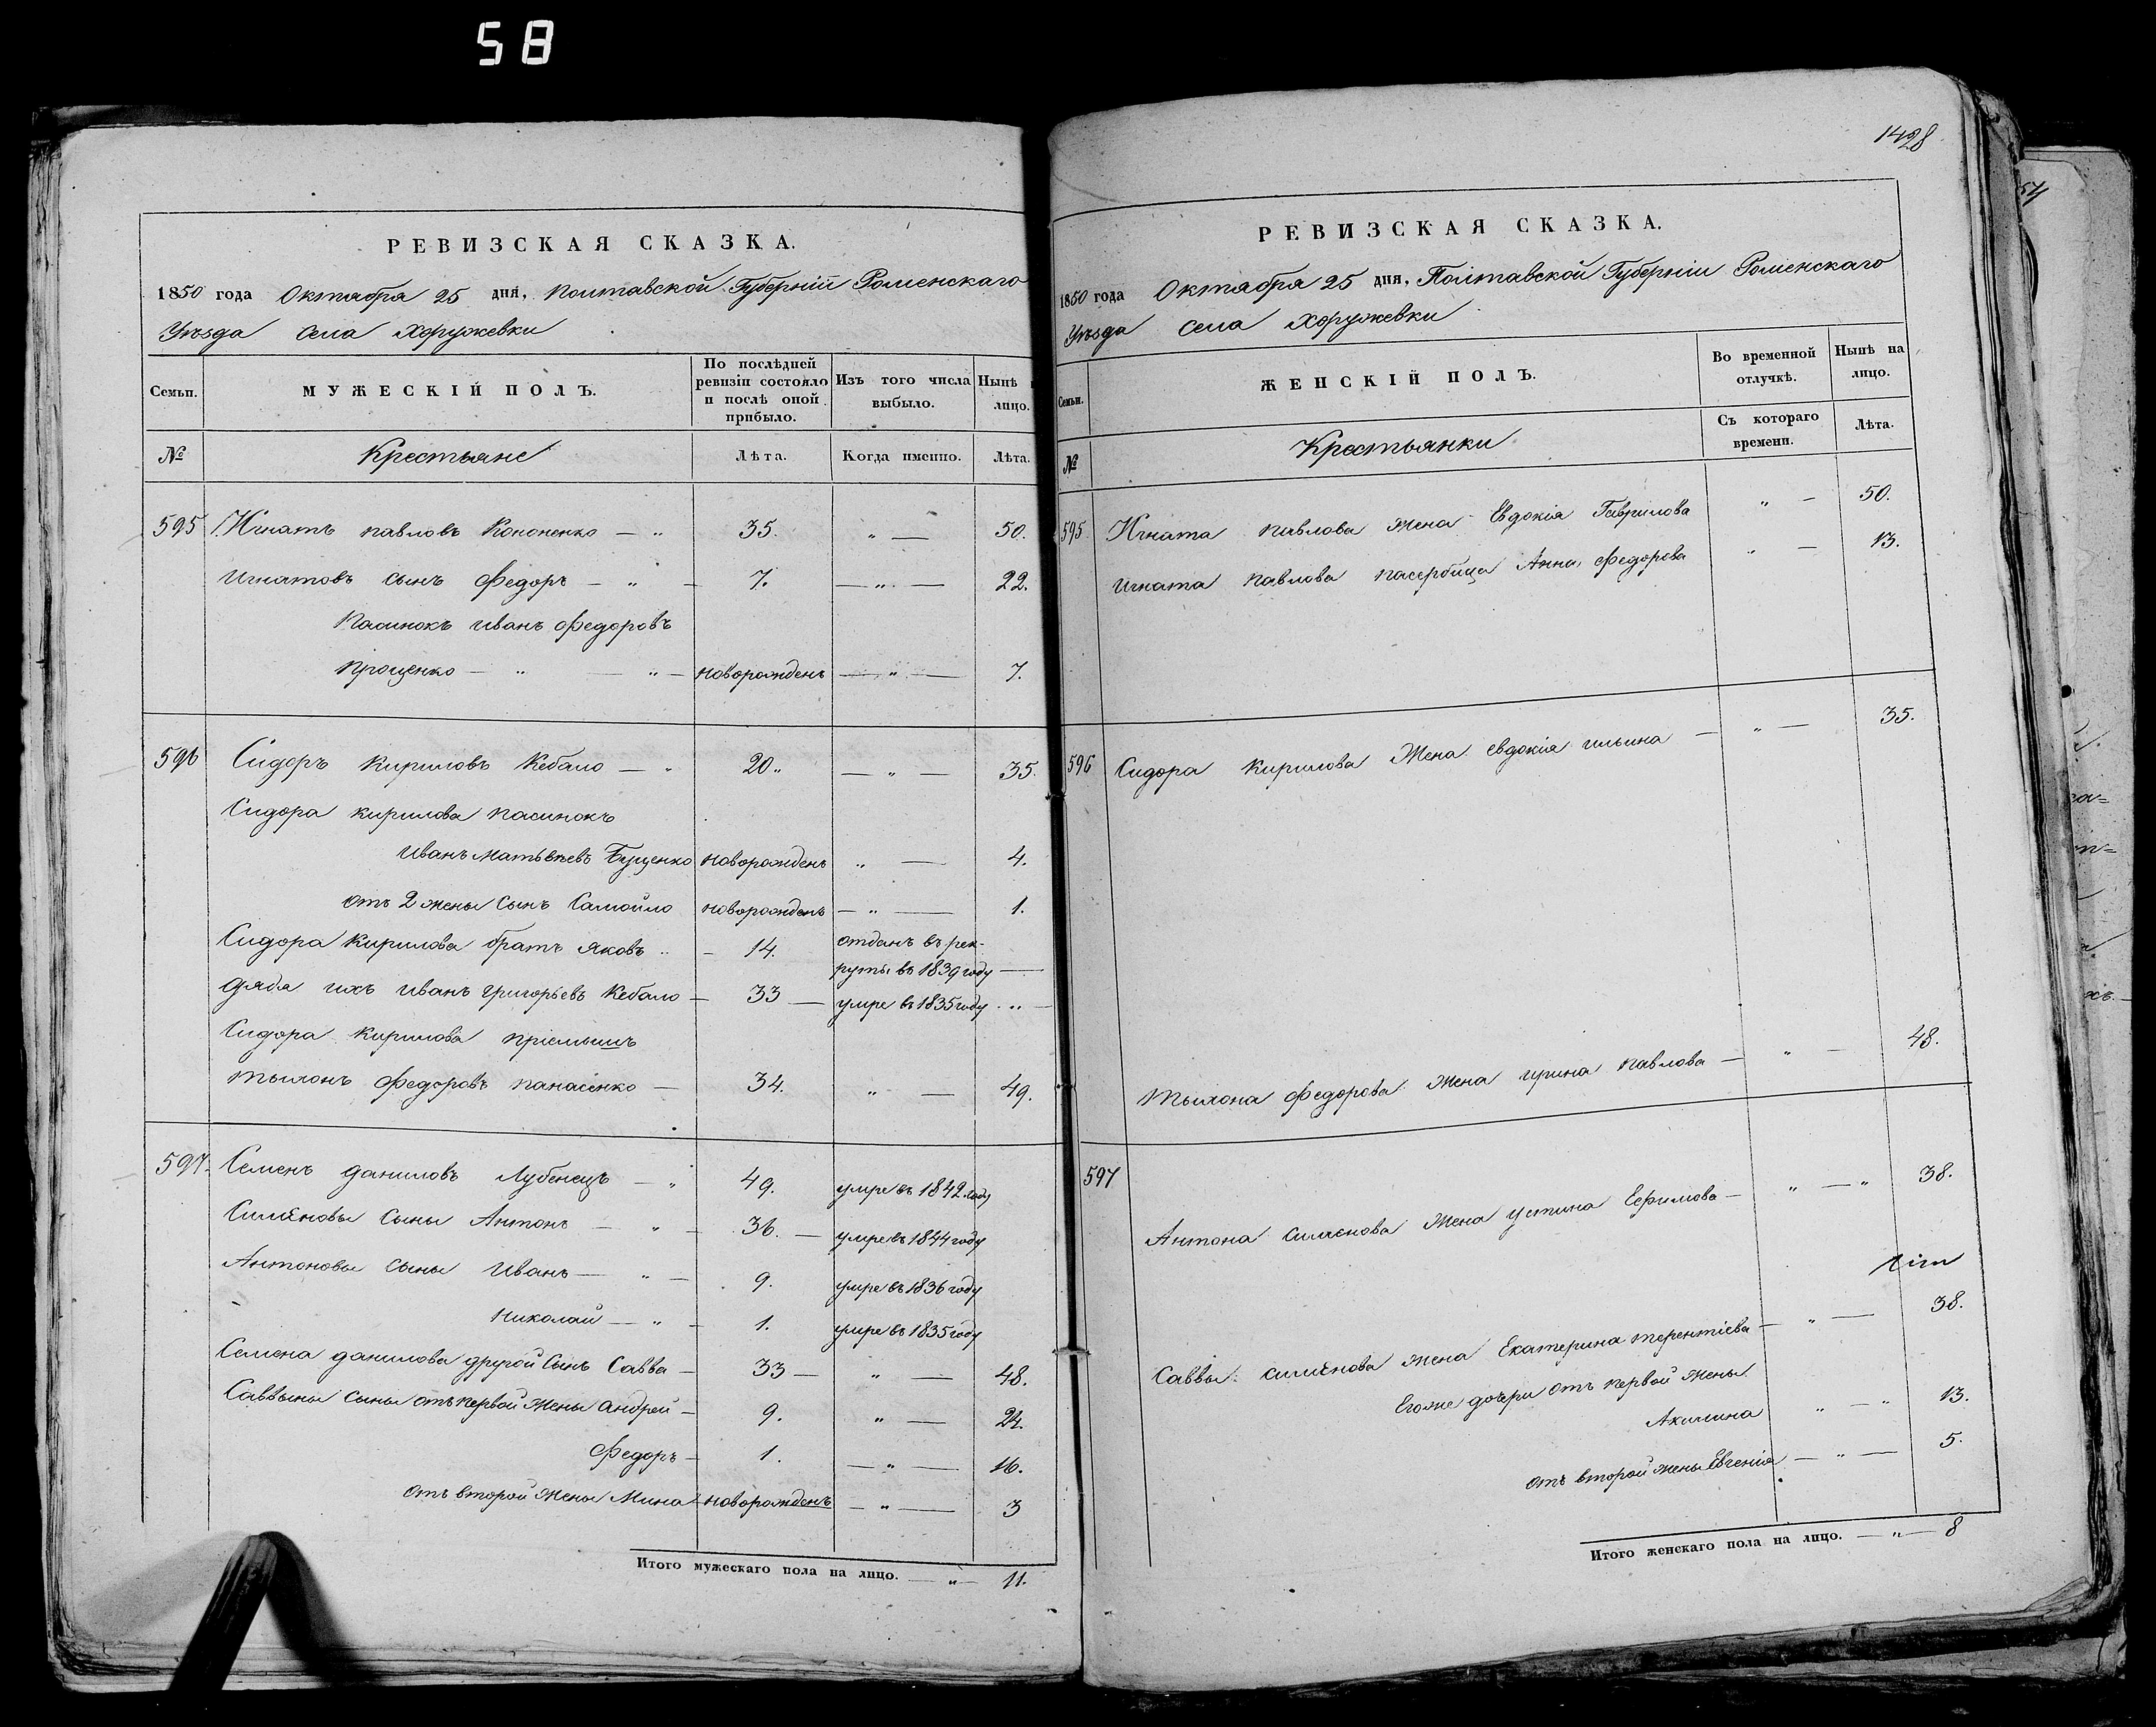 58
РЕВИЗСКАЯ СКАЗКА.
1850 года Октября 25 дня, Полтавской Губерніи Роменскаго
Уѣзда села Хоружевки
Семьи.
МУЖЕСКІЙ ПОЛЪ.
По послѣдней ревизіи состояло и послѣ оной прибыло.
Изъ того числа выбыло.
Нынѣ
лицо.
№
Крестьяне
Лѣта.
Когда именно.
Лѣта.
595 Игнатъ павловъ Кононенко — „ 35. „ — 50.
игнатовъ сынъ Федоръ — „ — 7. — „ — 22.
пасинокъ иванъ Федоровъ
проценко — „ — „ — новорожденъ — „ — 7.
596 Сидоръ кириловъ Кебало — „ 20 „ — „ — 35.
Сидора кирилова пасинокъ
иванъ матвѣевъ Буценко новорожденъ „ — 4.
отъ 2 жены сынъ Самойло новорожденъ — „ — 1.
Сидора кирилова братъ яковъ „ — 14. отданъ въ рек-
руты въ 1839 году —
дядя ихъ иванъ григорьевъ Кебало — 33 — умре въ 1835 году „ —
Сидора кирилова пріемышъ
тымонъ Федоровъ панасенко — 34. „ — 49.
597. Семенъ даниловъ Лубенецъ — „ 49. умре въ 1842 году
Симѣновы сыны Антонъ — „ — 36. — умре въ 1844 году
Антоновы сыны иванъ — „ — 9. умре въ 1836 году
николай — „ — 1. умре въ 1835 году
Семена данилова другой сынъ Савва — 33 — „ — 48.
Саввыны сыны отъ первой жены андрей — 9. „ — 24.
Федоръ — 1. — „ — 16.
отъ второй жены Мина новорожденъ — „ — 3
Итого мужескаго пола на лицо. — „ — 11.
1428
РЕВИЗСКАЯ СКАЗКА.
1850 года Октября 25 дня, Полтавской Губерніи Роменскаго
Уѣзда села Хоружевки
Семьи.
ЖЕНСКІЙ ПОЛЪ.
Во временной отлучкѣ.
Нынѣ на лицо.
№
Крестьянки
Съ котораго времени.
Лѣта.
595 Игната павлова жена Евдокія Гаврилова „ — 50.
игната павлова пасербица Анна Федорова „ — 13.
596 Сидора кирилова жена евдокія ильина — „ — 35.
тымона Федорова жена ирина павлова — „ — 48.
597
Антона симѣнова жена устина Ефимова — „ — „ 38.
Саввы симѣнова жена Екатерина терентіева — „ — 38.
Егоже дочери отъ первой жены
Акилина „ — „ 13.
отъ второй жены Евгенія — „ — 5.
Итого женскаго пола на лицо. — „ — 8